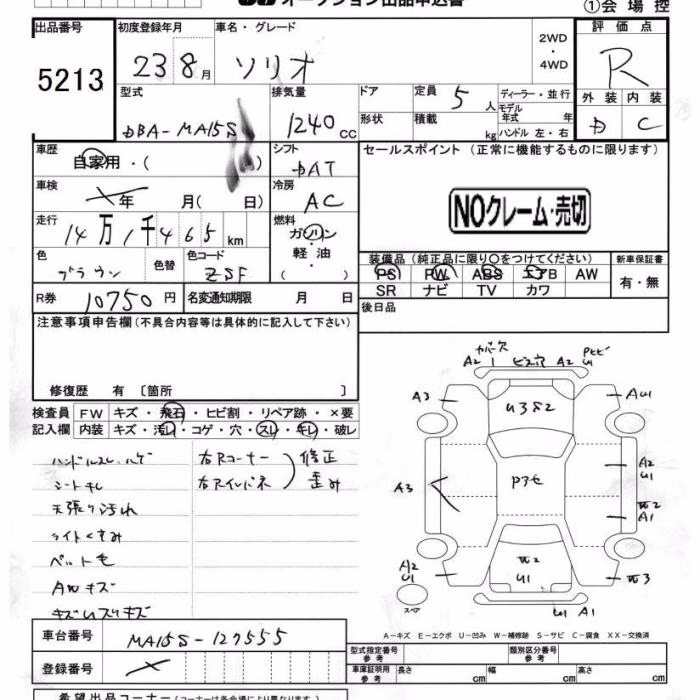 オークション出品申込書 ①会場控
出品番号 初度登録年月 車名・グレード 2WD・4WD 評価点
5213 23 8月 ソリオ R
型式 排気量 ドア 定員 ディーラー・並行 外装 内装
DBA-MA15S 1240cc 5人 モデル年式 年 D C
形状 積載 kg ハンドル 左・右
車歴 シフト セールスポイント (正常に機能するものに限ります)
自家用・( ) DAT
車検 冷房
年 月( 日) AC
NOクレーム・売切
走行 燃料
14万1千465km ガソリン・軽油・( )
色 色替 色コード 装備品(純正品に限り○をつけてください) 新車保証書
ブラウン ZSF PS PW ABS エアB AW 有・無
SR ナビ TV カワ
R券 10750円 名変通知期限 月 日 後日品
注意事項申告欄(不具合内容等は具体的に記入して下さい)
修復歴 有〔箇所 〕
検査員 FW キズ・飛石・ヒビ割・リペア跡・×要
記入欄 内装 キズ・汚れ・コゲ・穴・スレ・キレ・破レ
ハンドルスレ ハゲ
シートキレ
天張り汚れ
ライトくすみ
AWキズ
右Rコーナー
右Rインパネ
修正
歪み
A2 A2 U1
A3 AU1
U3S2
A3 A2 U1
W2 A1
A2 U1 W2 U1 W3
スペア U1 A1
A-キズ E-エクボ U-凹み W-補修跡 S-サビ C-腐食 XX-交換済
車台番号 MA15S-127555
型式指定番号 参考 類別区分番号 参考
登録番号
車庫証明用 参考 長さ cm 幅 cm 高さ cm
希望出品コーナー(コーナーは各会場により異なります)